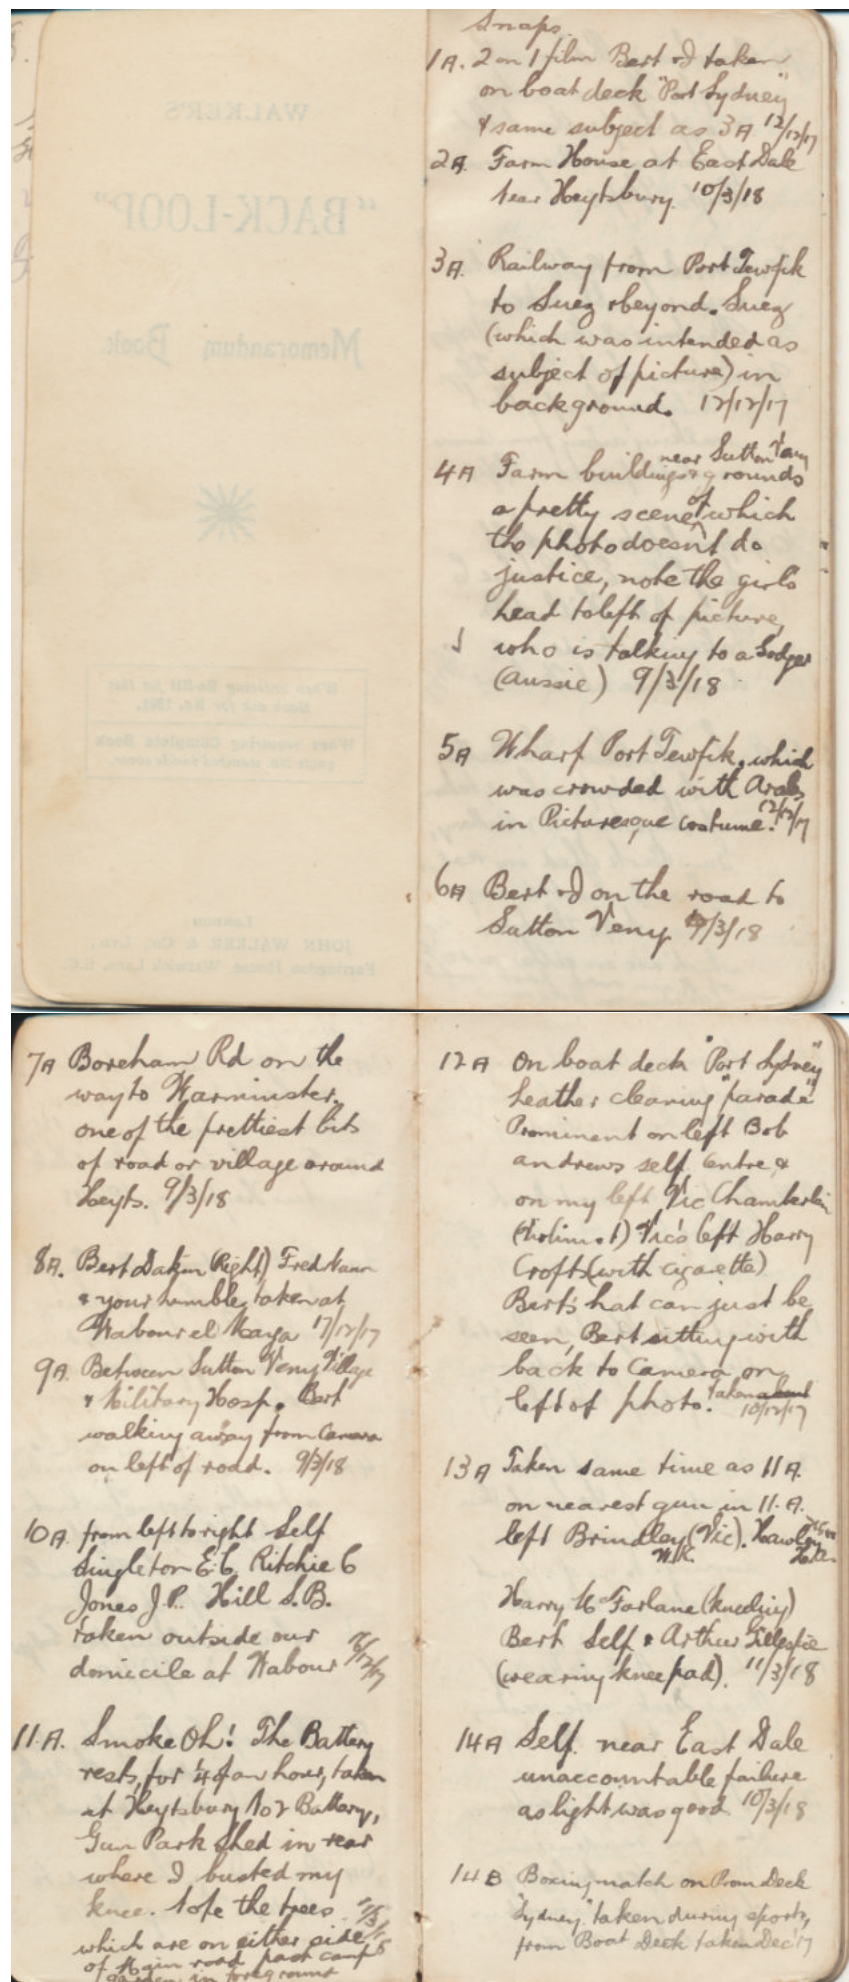 WALKER'S
"BACK-LOOP"
Memorandum Book
LONDON
JOHN WALKER & Co., Ltd.,
Farringdon House, Warwick Lane, E.C.
Snaps.
1A. 2 on 1 film Bert & I taken
on boat deck "Port Sydney"
& same subject as 3A 12/12/17
2A Farm House at East Dale
near Heytsbury. 10/3/18
3A. Railway from Port Tewfik
to Suez & beyond. Suez
(which was intended as
subject of picture) in
background. 12/12/17
near Sutton Veny
4A Farm buildings & grounds
a pretty scene of which
the photo doesn't do
justice, note the girls
head to left of picture,
who is talking to a Sodger
(Aussie) 9/3/18
5A Wharf Port Tewfik, which
was crowded with Arabs
in Picturesque costume. 12/12/17
6A Bert & I on the road to
Sutton Veny 9/3/18
7A Boreham Rd on the
way to Warminster.
one of the prettiest bits
of road or village around
Heyts. 9/3/18
8A. Bert Dakin (Right) Fred
& your humble, taken at
Habour el Maya 17/12/17
9A. Between Sutton Veny Village
& Military Hosp. Bert
walking away from Camera
on left of road. 9/3/18
10A. from left to right Self
Singleton E.C. Ritchie C
Jones J.P. Hill S.B.
taken outside our
domicile at Habour 16/12/17
11.A. Smoke Oh! The Battery
rests, for 1/4 of an hour, taken
at Heytsbury No 2 Battery,
Gun Park Shed in rear
where I busted my
knee. Note the trees
which are on either side
of Main road past camp
garden in foreground
12A On boat deck "Port Sydney"
leather cleaning "parade"
Prominent on left Bob
Andrews self centre &
on my left Vic Chamberlin
Vic's left Harry
Crofts (with cigarette)
Bert's hat can just be
seen, Bert sitting with
back to Camera on
left of photo. taken about
10/12/17
13A Taken same time as 11A.
on nearest gun in 11.A.
left Brindley (Vic).
W.K.
Harry McFarlane (kneeling)
Bert Self & Arthur Gillespie
(wearing knee pad). 11/3/18
14A Self near East Dale
unaccountable failure
as light was good 10/3/18
14B Boxing match on Prom Deck
"Sydney," taken during sports,
from Boat Deck taken Dec '17